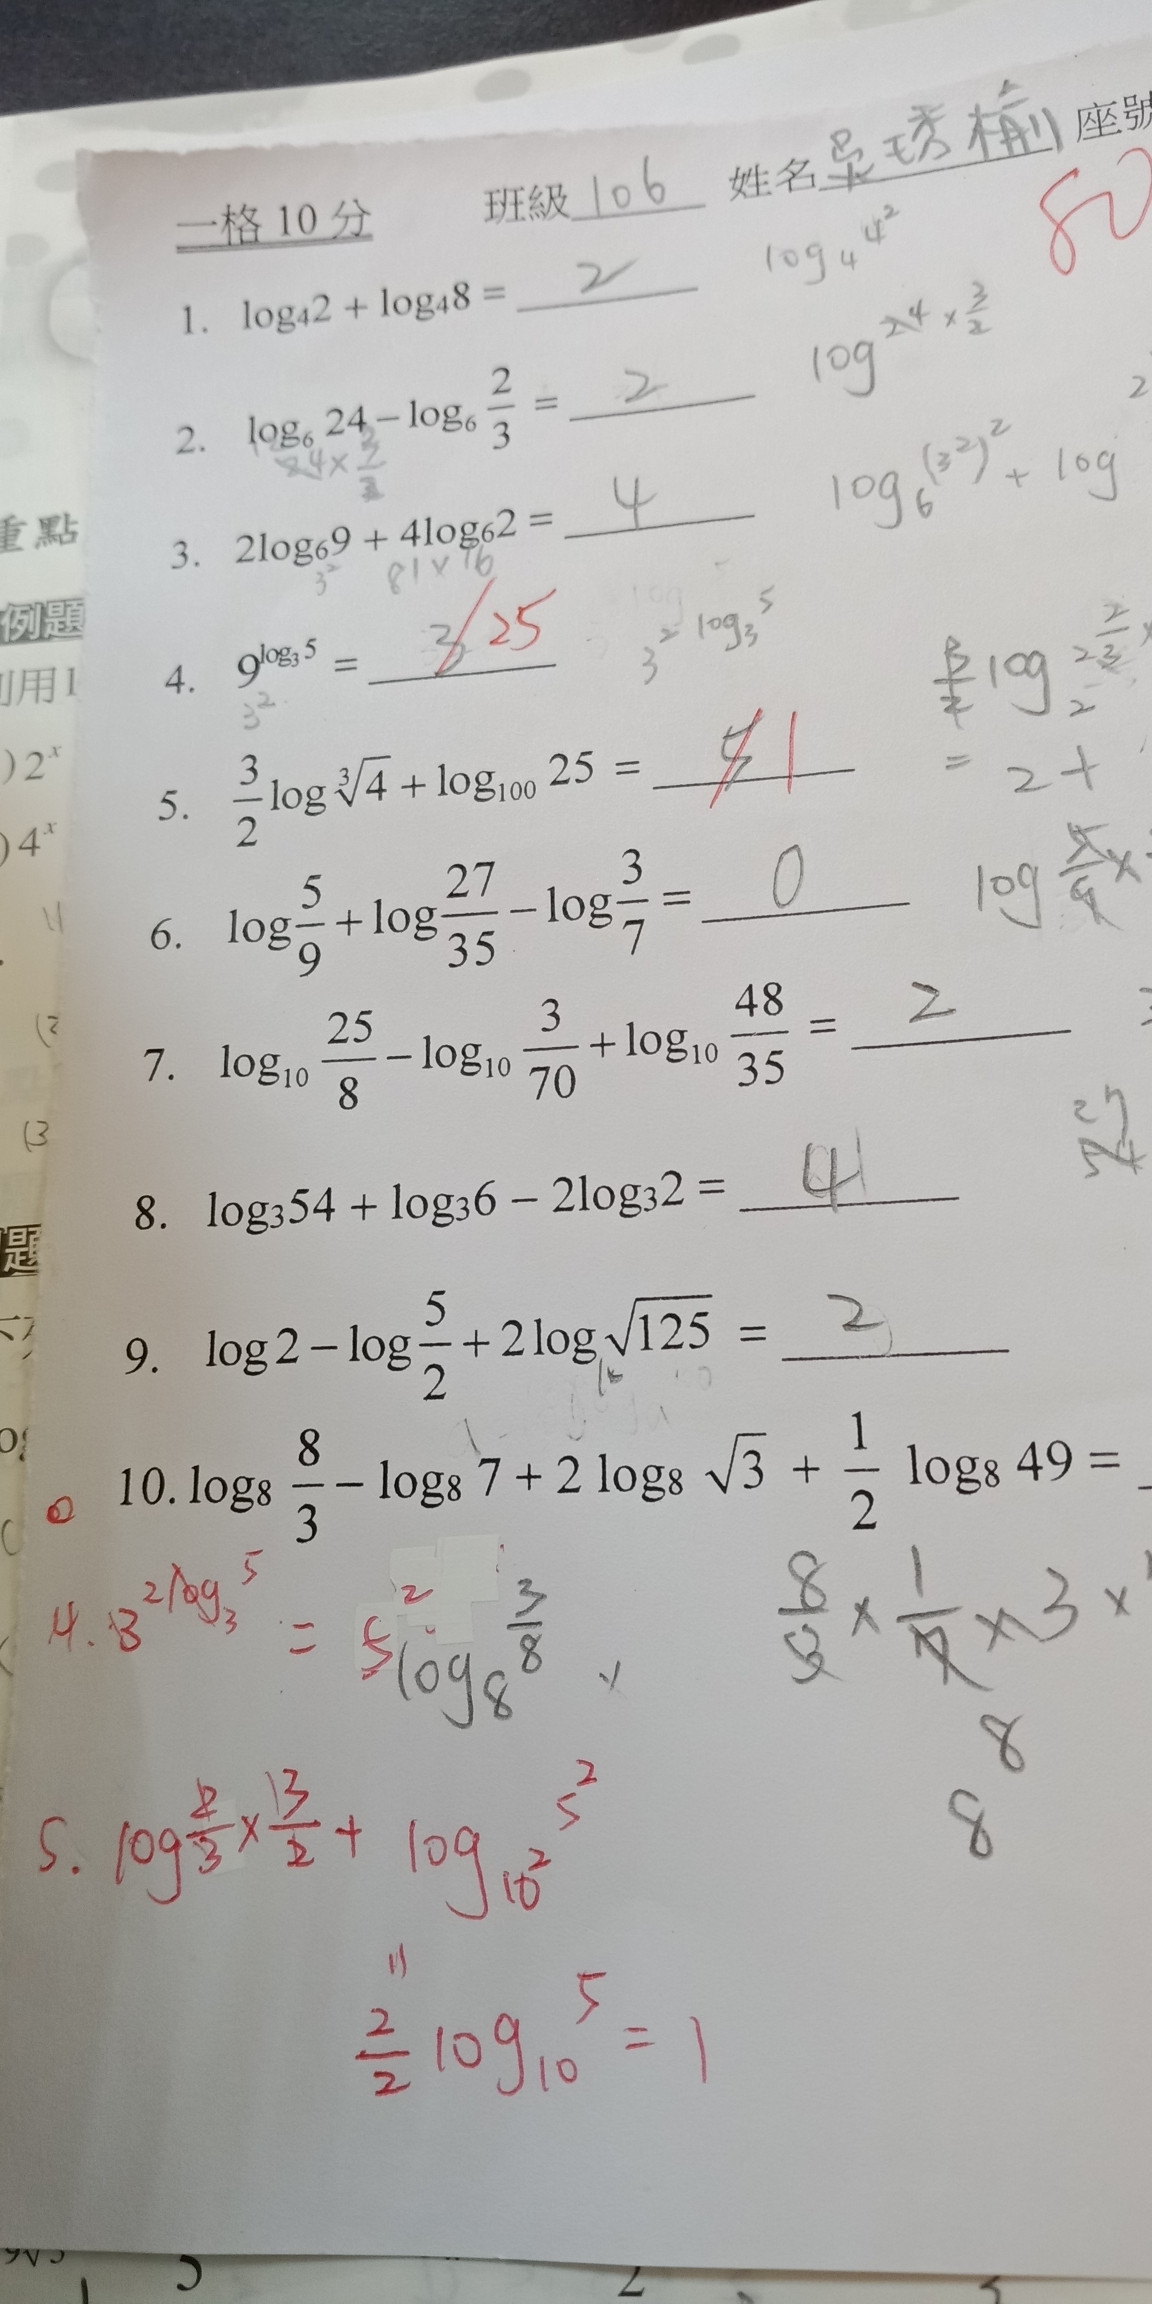 一格 10 分 班級 106 姓名 吳琇 座號
80
1. log₄2 + log₄8 = 2 log₄4²
2. log₆ 24 − log₆ 2/3 = 2 log 24 × 3/2
24 × 3/2
3. 2log₆9 + 4log₆2 = 4 log₆(3²)² + log
3² 81 × 16
4. 9^(log₃5) = 3 25 3^(2 log₃5)
3²
5. 3/2 log ∛4 + log₁₀₀ 25 = 1
= 2 +
6. log 5/9 + log 27/35 − log 3/7 = 0 log 5/9 ×
7. log₁₀ 25/8 − log₁₀ 3/70 + log₁₀ 48/35 = 2
27
54
8. log₃54 + log₃6 − 2log₃2 = 4
9. log 2 − log 5/2 + 2 log √125 = 2
10. log₈ 8/3 − log₈ 7 + 2 log₈ √3 + 1/2 log₈ 49 =
4. 3^(2log₃5) = 5²
log₈ 3/8
8/3 × 1/7 × 3 ×
8
8
5. log 2/3 × 3/2 + log₁₀² 5²
2/2 log₁₀ 5 = 1
重點
例題
用
) 2ˣ
) 4ˣ
(2
(3
題